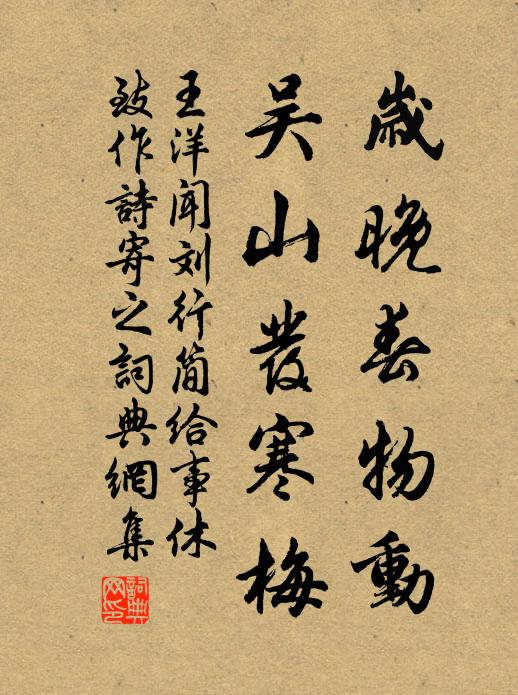 歲晚春物動
吳山發寒梅
王洋闻刘行简给事休
致作詩寄之詞典網集
詞典网印